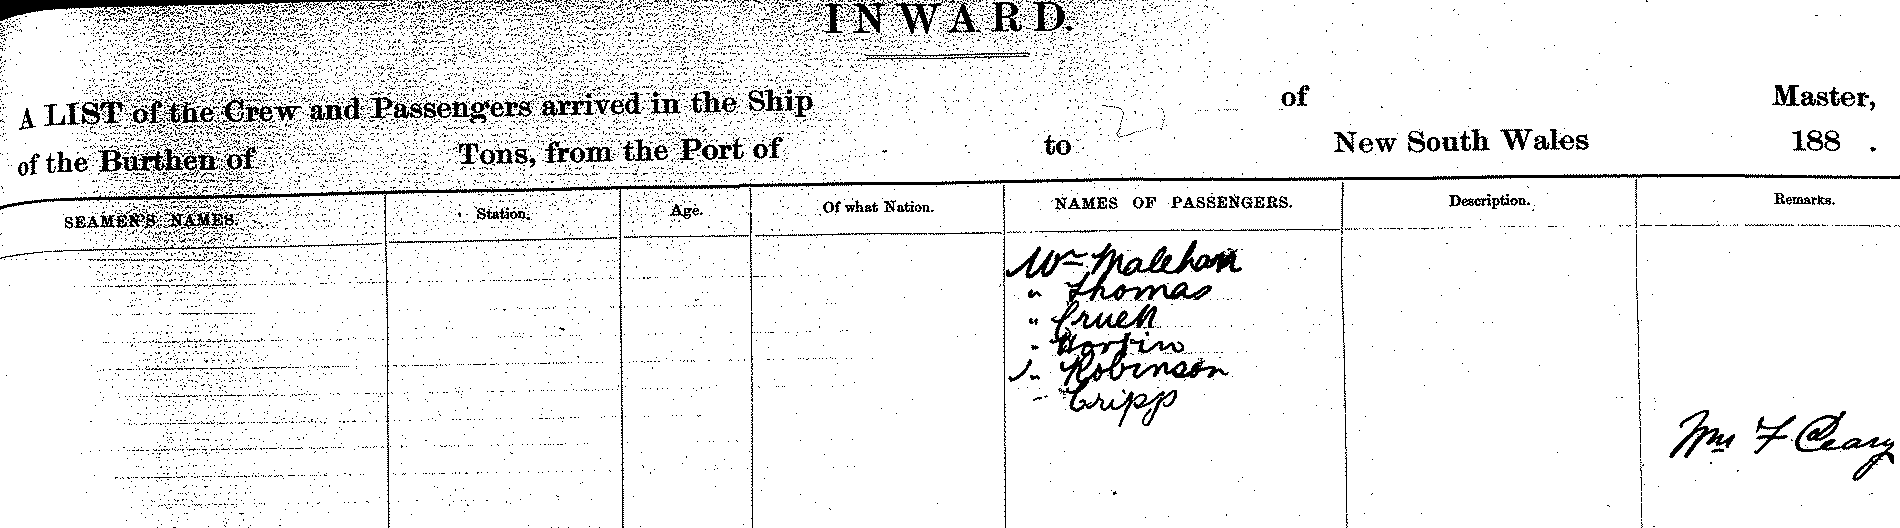 INWARD.
A LIST of the Crew and Passengers arrived in the Ship of Master,
of the Burthen of Tons, from the Port of to New South Wales 188 .
SEAMEN'S NAMES. Station. Age. Of what Nation. NAMES OF PASSENGERS. Description. Remarks.
Wm Maleham
" Thomas
" Cruell
" Martin
" Robinson
" Cripp
Wm F Cleary